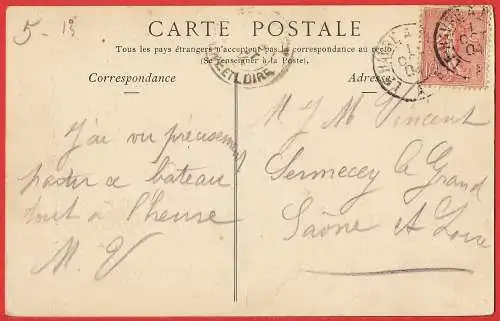 5 - 13
CARTE POSTALE
Tous les pays étrangers n'acceptent pas la correspondance au recto
(Se renseigner à la Poste).
ET LOIRE
Correspondance
Adresse
M J M Vincent
Sermecey le Grand
Saône et Loire
J'ai vu précisement
partir ce bateau
tout à l'heure
M. V